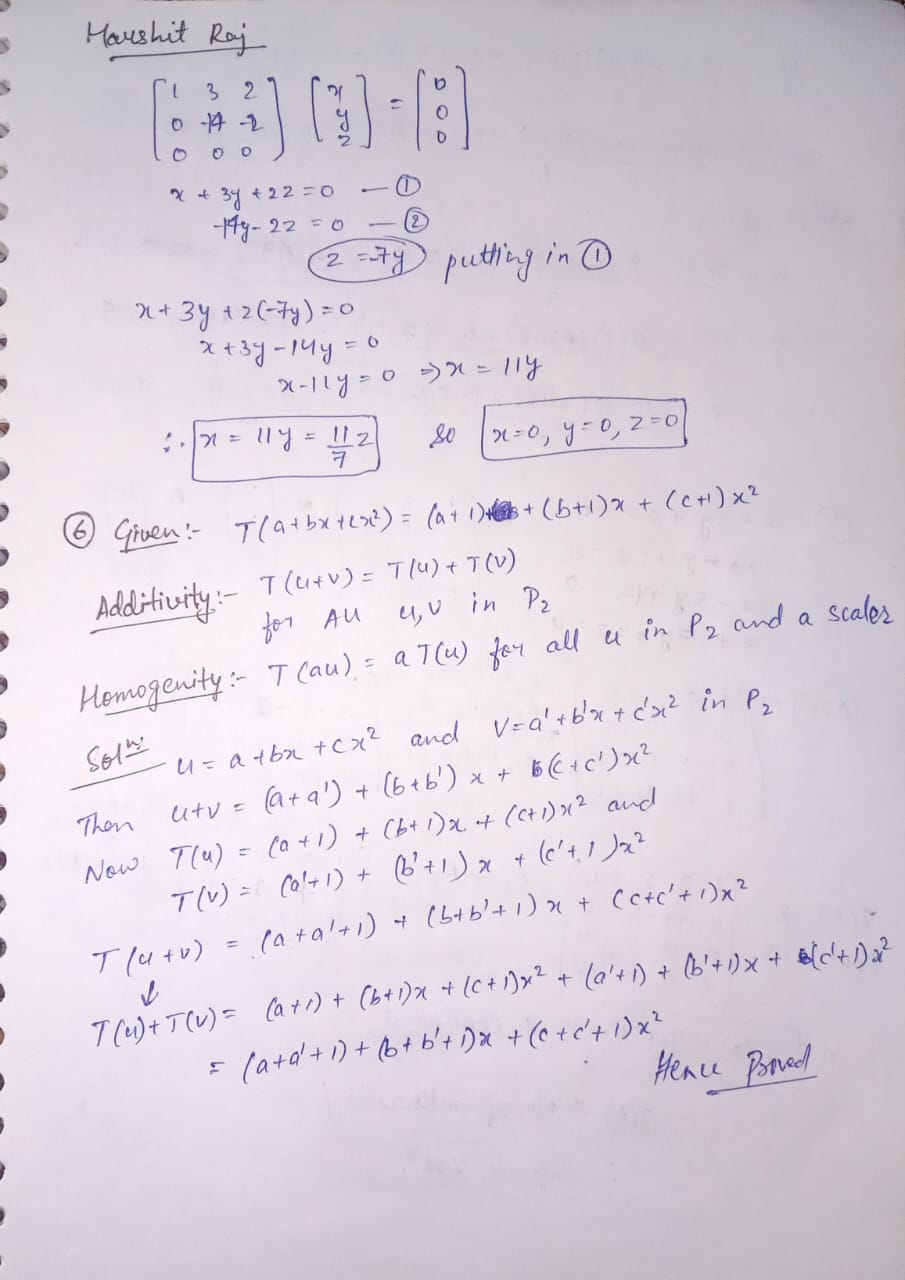 Harshit Raj
[1 3 2] [x] = [0]
[0 -14 -2] [y] [0]
[0 0 0] [z] [0]
x + 3y + 2z = 0 — ①
-14y - 2z = 0 — ②
z = -7y putting in ①
x + 3y + 2(-7y) = 0
x + 3y - 14y = 0
x - 11y = 0 ⇒ x = 11y
∴ x = 11y = 11/7 z so x=0, y=0, z=0
⑥ Given :- T(a+bx+cx²) = (a+1) + (b+1)x + (c+1)x²
Additivity :- T(u+v) = T(u) + T(v)
for All u,v in P₂
Homogenity :- T(au) = a T(u) for all u in P₂ and a scaler
Solⁿ: u = a + bx + cx² and v = a' + b'x + c'x² in P₂
Then u+v = (a+a') + (b+b')x + (c+c')x²
Now T(u) = (a+1) + (b+1)x + (c+1)x² and
T(v) = (a'+1) + (b'+1)x + (c'+1)x²
T(u+v) = (a+a'+1) + (b+b'+1)x + (c+c'+1)x²
↓
T(u)+T(v) = (a+1) + (b+1)x + (c+1)x² + (a'+1) + (b'+1)x + (c'+1)x²
= (a+a'+1) + (b+b'+1)x + (c+c'+1)x²
Hence Proved